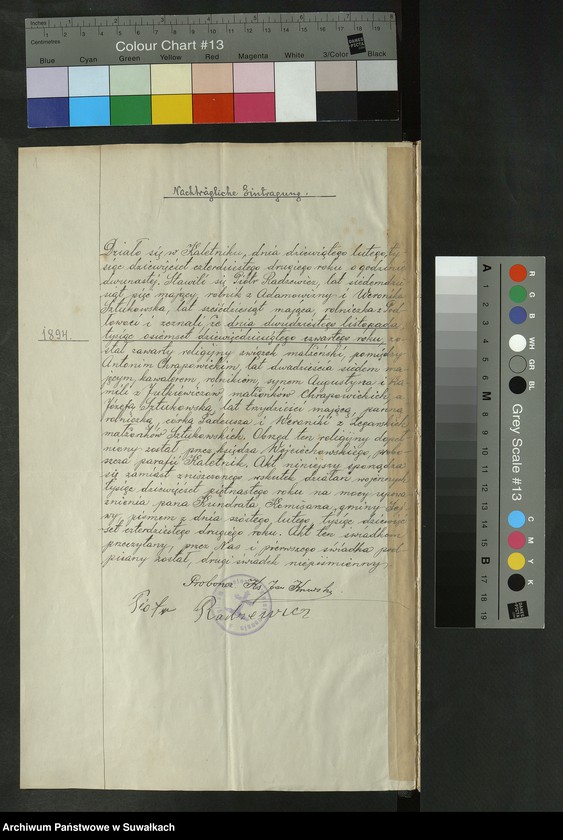 Inches
Centimetres
Colour Chart #13
Blue Cyan Green Yellow Red Magenta White 3/Color Black
Nachträgliche Eintragung.
1894.
Działo się w Kaletniku, dnia dziewiątego lutego, ty-
siąc dziewięćset czterdziestego drugiego roku o godzinie
dwunastej. Stawili się Piotr Radzewicz, lat siedemdzie-
siąt pięć mający, rolnik z Adamowizny i Weronika
Sztukowska, lat sześćdziesiąt mająca, rolniczka z
i zeznali że dnia dwudziestego listopada
tysiąc osiemset dziewięćdziesiątego czwartego roku zo-
stał zawarty religijny związek małżeński, pomiędzy
Antonim Chrapowickim lat dwadzieścia siedem ma-
jącym, kawalerem, rolnikiem, synem Augustyna i
z Jutkiewiczów, małżonków Chrapowickich, a
Józefą Sztukowską, lat trzydzieści mającą, panną
rolniczką, córką Tadeusza i Weroniki z
małżonków Sztukowskich. Obrzęd ten religijny dopeł-
niony został przez księdza Wojciechowskiego, probo-
szcza parafji Kaletnik. Akt niniejszy sporządza
się zamiast zniszczonego wskutek działań wojennych
tysiąc dziewięćset piętnastego roku na mocy
pana Kundrata, Komisarza gminy
pismem z dnia szóstego lutego tysiąc dziewięć-
set czterdziestego drugiego roku. Akt ten świadkom
przeczytany, przez Nas i pierwszego świadka pod-
pisany został, drugi świadek niepiśmienny.
Proboszcz Ks. Jan
Piotr Radzewicz
A 1 2 3 4 5 6 M 8 9 10 11 12 13 14 15 B 17 18 19
R G B WH GR BL
Grey Scale #13
C M Y K
Archiwum Państwowe w Suwałkach